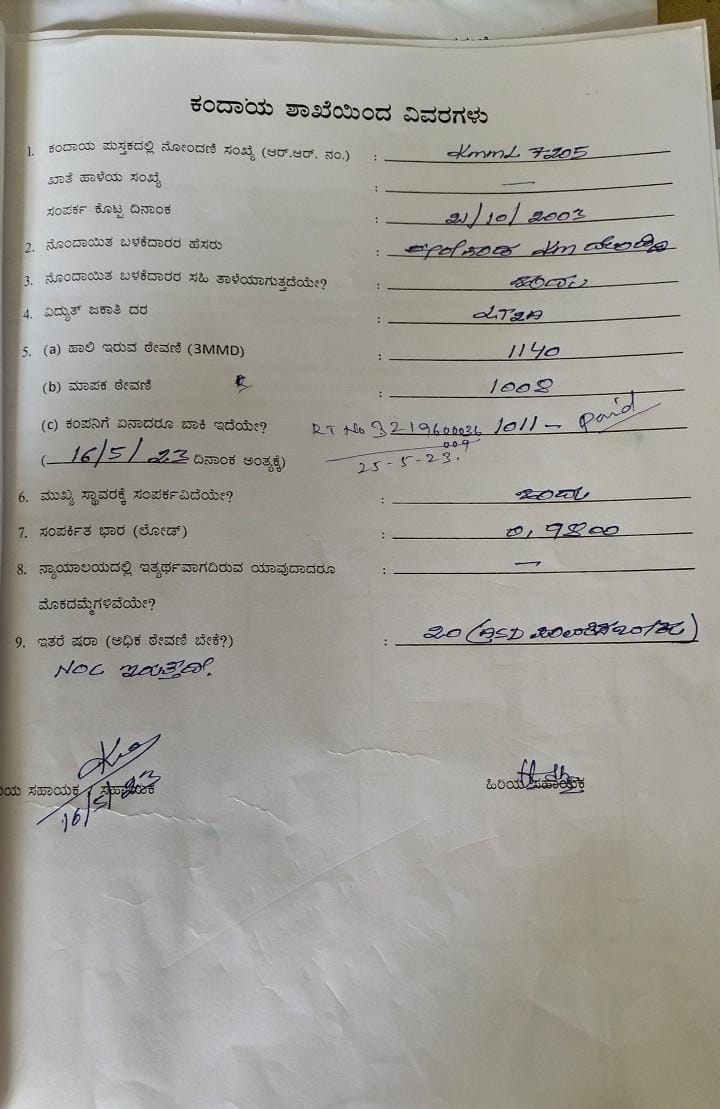 ಕಂದಾಯ ಶಾಖೆಯಿಂದ ವಿವರಗಳು
1. ಕಂದಾಯ ಪುಸ್ತಕದಲ್ಲಿ ನೋಂದಣಿ ಸಂಖ್ಯೆ (ಆರ್.ಆರ್. ನಂ.) : KmmL 7205
ಖಾತೆ ಹಾಳೆಯ ಸಂಖ್ಯೆ : —
ಸಂಪರ್ಕ ಕೊಟ್ಟ ದಿನಾಂಕ : 21/10/2003
2. ನೊಂದಾಯಿತ ಬಳಕೆದಾರರ ಹೆಸರು :
3. ನೊಂದಾಯಿತ ಬಳಕೆದಾರರ ಸಹಿ ತಾಳೆಯಾಗುತ್ತದೆಯೇ? : ಹೌದು
4. ವಿದ್ಯುತ್ ಜಕಾತಿ ದರ : LT2A
5. (a) ಹಾಲಿ ಇರುವ ಠೇವಣಿ (3MMD) : 1140
(b) ಮಾಪಕ ಠೇವಣಿ : 1008
(c) ಕಂಪನಿಗೆ ಏನಾದರೂ ಬಾಕಿ ಇದೆಯೇ? RT No 3219600036 1011 — paid
009
(16/5/23 ದಿನಾಂಕ ಅಂತ್ಯಕ್ಕೆ) 25-5-23.
6. ಮುಖ್ಯ ಸ್ಥಾವರಕ್ಕೆ ಸಂಪರ್ಕವಿದೆಯೇ? : ಹೌದು
7. ಸಂಪರ್ಕಿತ ಭಾರ (ಲೋಡ್) :
8. ನ್ಯಾಯಾಲಯದಲ್ಲಿ ಇತ್ಯರ್ಥವಾಗದಿರುವ ಯಾವುದಾದರೂ : —
ಮೊಕದಮ್ಮೆಗಳಿವೆಯೇ?
9. ಇತರೆ ಷರಾ (ಅಧಿಕ ಠೇವಣಿ ಬೇಕೆ?) : 20 (ASD
NOC ಇರುತ್ತದೆ.
ಸಹಾಯಕ / ಸಹಾಯಕ
16/5/23
ಹಿರಿಯ ಸಹಾಯಕ